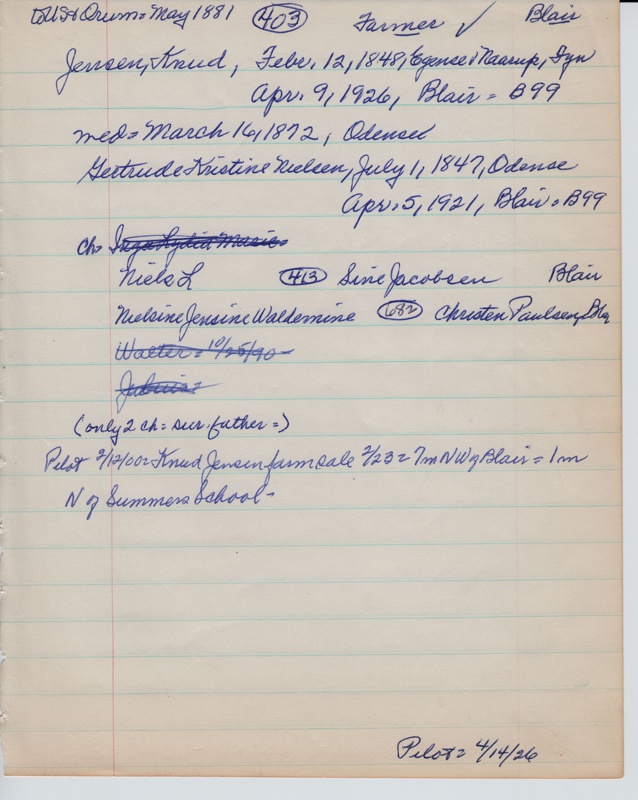 to US & Orum = May 1881 403 Farmer ✓ Blair
Jensen, Knud, Febr. 12, 1848, Egense i Naarup, Fyn
Apr. 9, 1926, Blair = B99
med = March 16, 1872, Odense
Gertrude Kristine Nielsen, July 1, 1847, Odense
Apr. 5, 1921, Blair = B99
ch = Inga Lydia Marie =
Niels L 413 Sine Jacobsen Blair
Nielsine Jensine Waldemine 682 Christen Paulsen, Blair
Walter = 10/25/90 -
Julius =
(only 2 ch = sur. father =)
Pilot 2/12/00 = Knud Jensen farm sale 2/23 = 7m NW of Blair = 1m
N of Summers School -
Pilot = 4/14/26